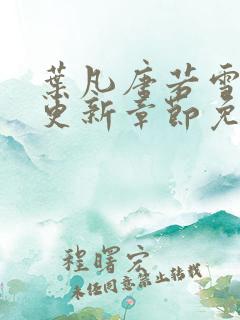 葉凡唐若雪
更新章節免
程曙宏
未经同意禁止转载